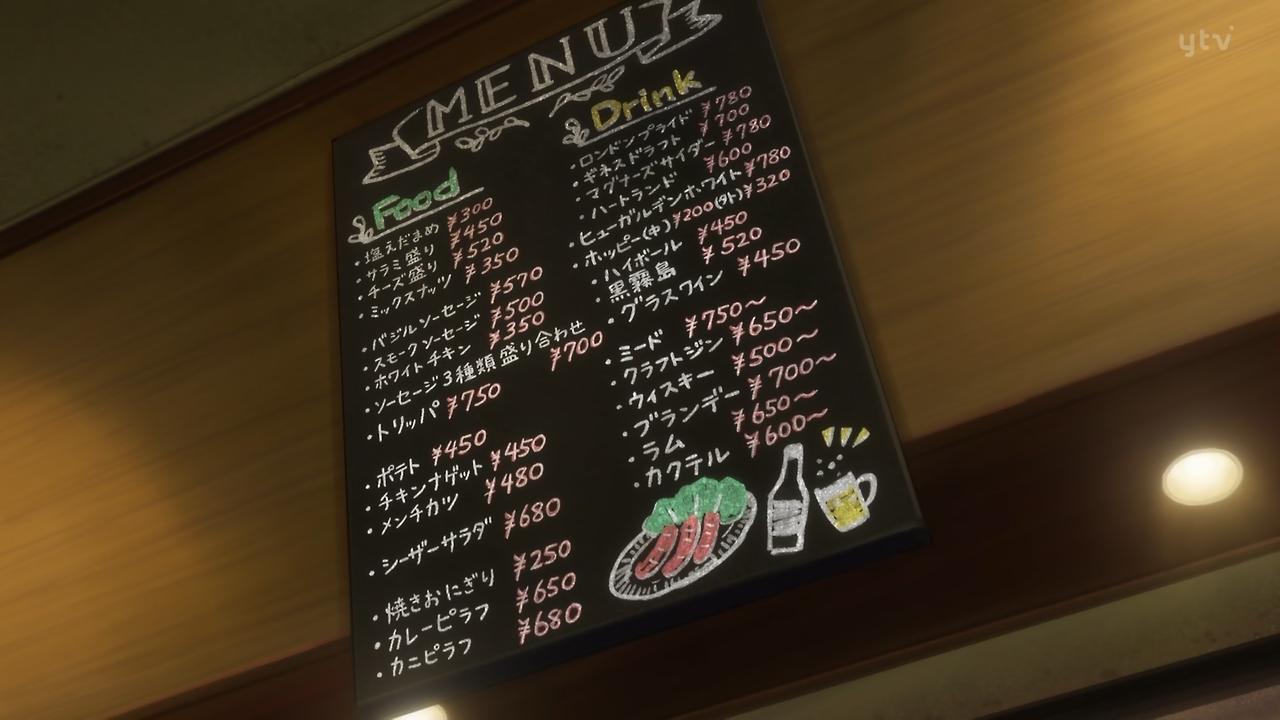 ytv
MENU
Food
・塩えだまめ ¥300
・サラミ盛り ¥450
・チーズ盛り ¥520
・ミックスナッツ ¥350
・バジルソーセージ ¥570
・スモークソーセージ ¥500
・ホワイトチキン ¥350
・ソーセージ3種類盛り合わせ ¥700
・トリッパ ¥750
・ポテト ¥450
・チキンナゲット ¥450
・メンチカツ ¥480
・シーザーサラダ ¥680
・焼きおにぎり ¥250
・カレーピラフ ¥650
・カニピラフ ¥680
Drink
・ロンドンプライド ¥780
・ギネスドラフト ¥700
・マグナーズサイダー ¥780
・ハートランド ¥600
・ヒューガルデンホワイト ¥780
・ホッピー(キ)¥200(外)¥320
・ハイボール ¥450
・黒霧島 ¥520
・グラスワイン ¥450
・ミード ¥750〜
・クラフトジン ¥650〜
・ウィスキー ¥500〜
・ブランデー ¥700〜
・ラム ¥650〜
・カクテル ¥600〜